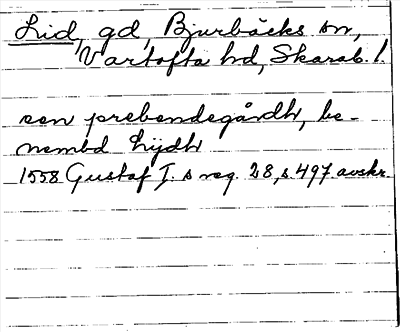 Lid, gd, Bjurbäcks sn,
Vartofta hd, Skarab. l.
een prebendegårdh, be-
nembd Lijdh
1558 Gustaf I. s reg. 28, s 497 avskr.